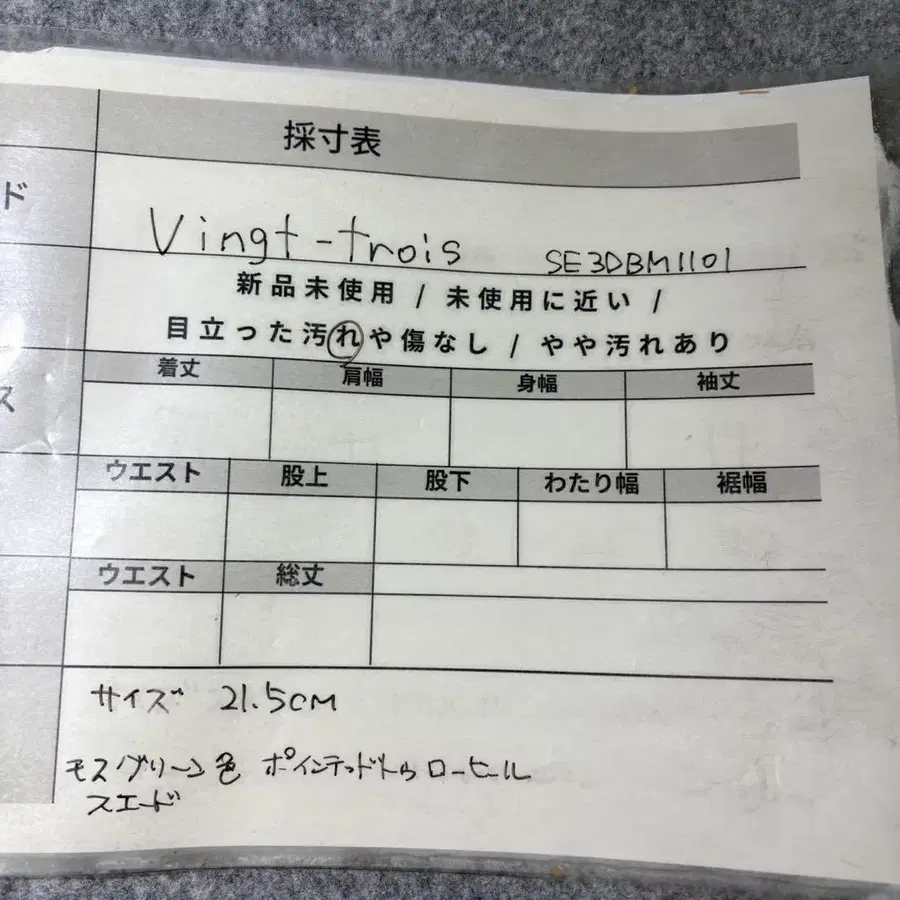 採寸表
ド
Vingt-trois SE3DBM1101
新品未使用 / 未使用に近い /
目立った汚れや傷なし / やや汚れあり
ス
着丈 肩幅 身幅 袖丈
ウエスト 股上 股下 わたり幅 裾幅
ウエスト 総丈
サイズ 21.5CM
モスグリーン色 ポインテッドトゥ ローヒール
スエード